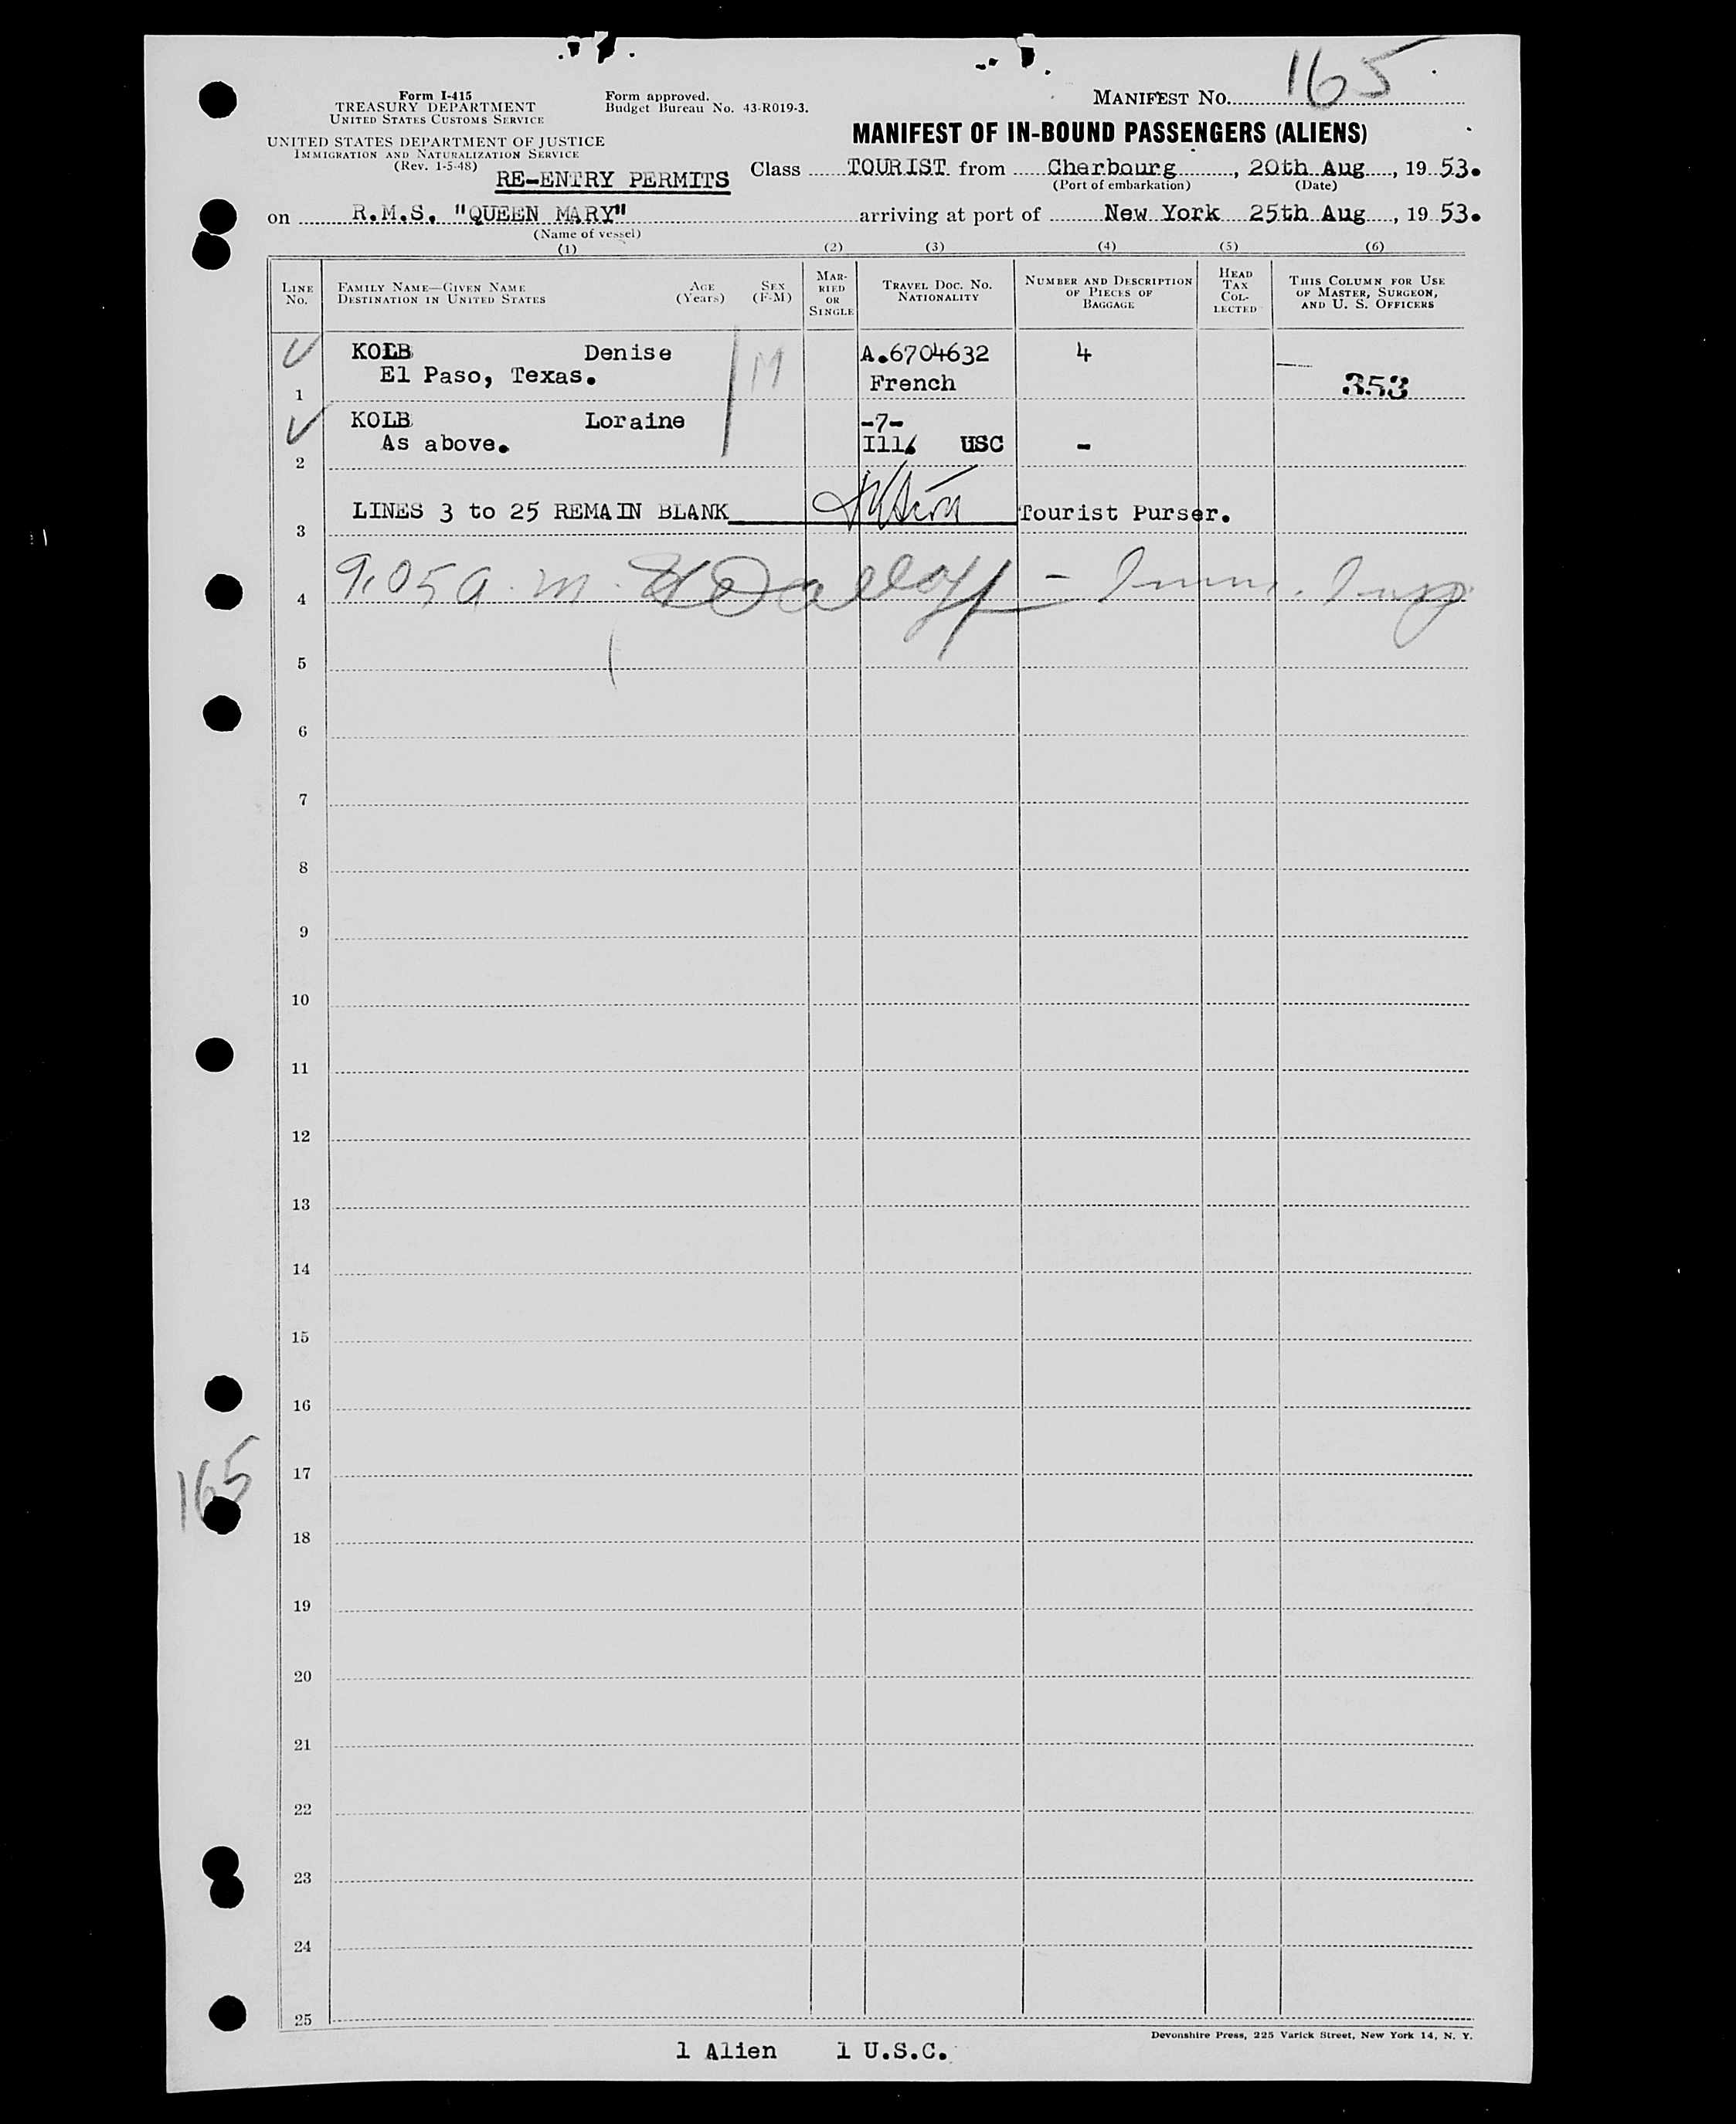 165
Form I-415
TREASURY DEPARTMENT
UNITED STATES CUSTOMS SERVICE
Form approved.
Budget Bureau No. 43-R019-3.
MANIFEST NO.
UNITED STATES DEPARTMENT OF JUSTICE
IMMIGRATION AND NATURALIZATION SERVICE
(Rev. 1-5-48)
MANIFEST OF IN-BOUND PASSENGERS (ALIENS)
RE-ENTRY PERMITS
Class TOURIST from Cherbourg, 20th Aug, 19 53.
(Port of embarkation) (Date)
on R.M.S. "QUEEN MARY" arriving at port of New York 25th Aug, 19 53.
(Name of vessel)
(1) (2) (3) (4) (5) (6)
LINE NO.
FAMILY NAME—GIVEN NAME
DESTINATION IN UNITED STATES
AGE (Years)
SEX (F-M)
MARRIED OR SINGLE
TRAVEL DOC. NO.
NATIONALITY
NUMBER AND DESCRIPTION OF PIECES OF BAGGAGE
HEAD TAX COLLECTED
THIS COLUMN FOR USE OF MASTER, SURGEON, AND U. S. OFFICERS
KOLB Denise M A.6704632 4
El Paso, Texas. French 353
1
KOLB Loraine -7-
As above. Ill. USC -
2
LINES 3 to 25 REMAIN BLANK Tourist Purser.
3
9.05 a.m. - Imm. Insp
4
5
6
7
8
9
10
11
12
13
14
15
16
165
17
18
19
20
21
22
23
24
25
Devonshire Press, 225 Varick Street, New York 14, N. Y.
1 Alien 1 U.S.C.